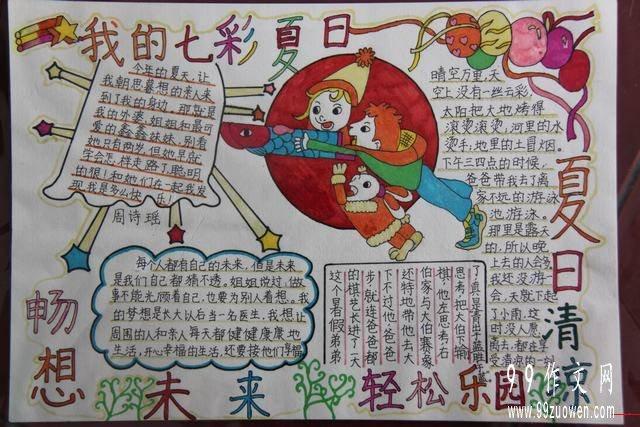 我的七彩夏日
今年的夏天,让
我朝思暮想的亲人来
到了我的身边,那就是
我的外婆,姐姐和最可
爱的鑫鑫妹妹,别看
她只有两岁,但她早就
学会怎样走路了,聪明
的很!和她们在一起我发
现我是多么快乐!
周诗瑶
晴空万里,天
空上没有一丝云彩,
太阳把大地烤得
滚烫滚烫,河里的水
烫手,地里的土冒烟。
下午三四点的时候,
爸爸带我去了离
家不远的游泳
池游泳。
那里是露天
的,所以晚
上去的人会多
我还没游
会,天就下起
了小雨,这
时没人愿
离去,都在享
受清凉的一刻
夏日清凉
每个人都有自己的未来,但是未来
是我们自己都猜不透,姐姐说过,做
事不能光顾看自己,也要为别人着想。我
的梦想是长大以后当一名医生,我想让
周围的人和亲人每天都健健康康地
生活,开心幸福的生活,还要接他们享福
畅想未来
了真是青出于蓝胜于蓝
思考,把大伯下输
棋,他左思考右
伯家与大伯赛象
还特地带他去大
下不过他,爸爸
步,就连爸爸都
的棋艺长进了一大
这个暑假弟弟
轻松乐园
99作文网
www.99zuowen.com